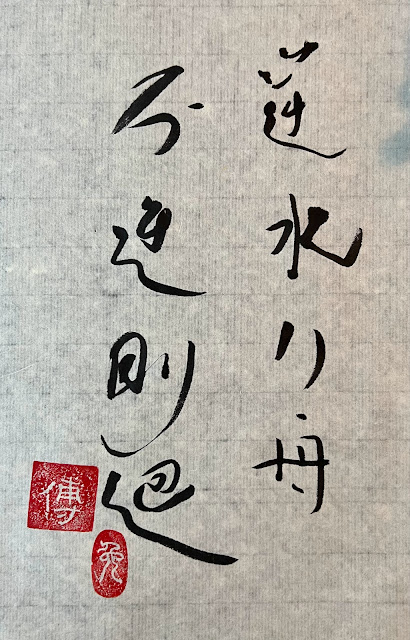 逆水行舟
不進則退
傅